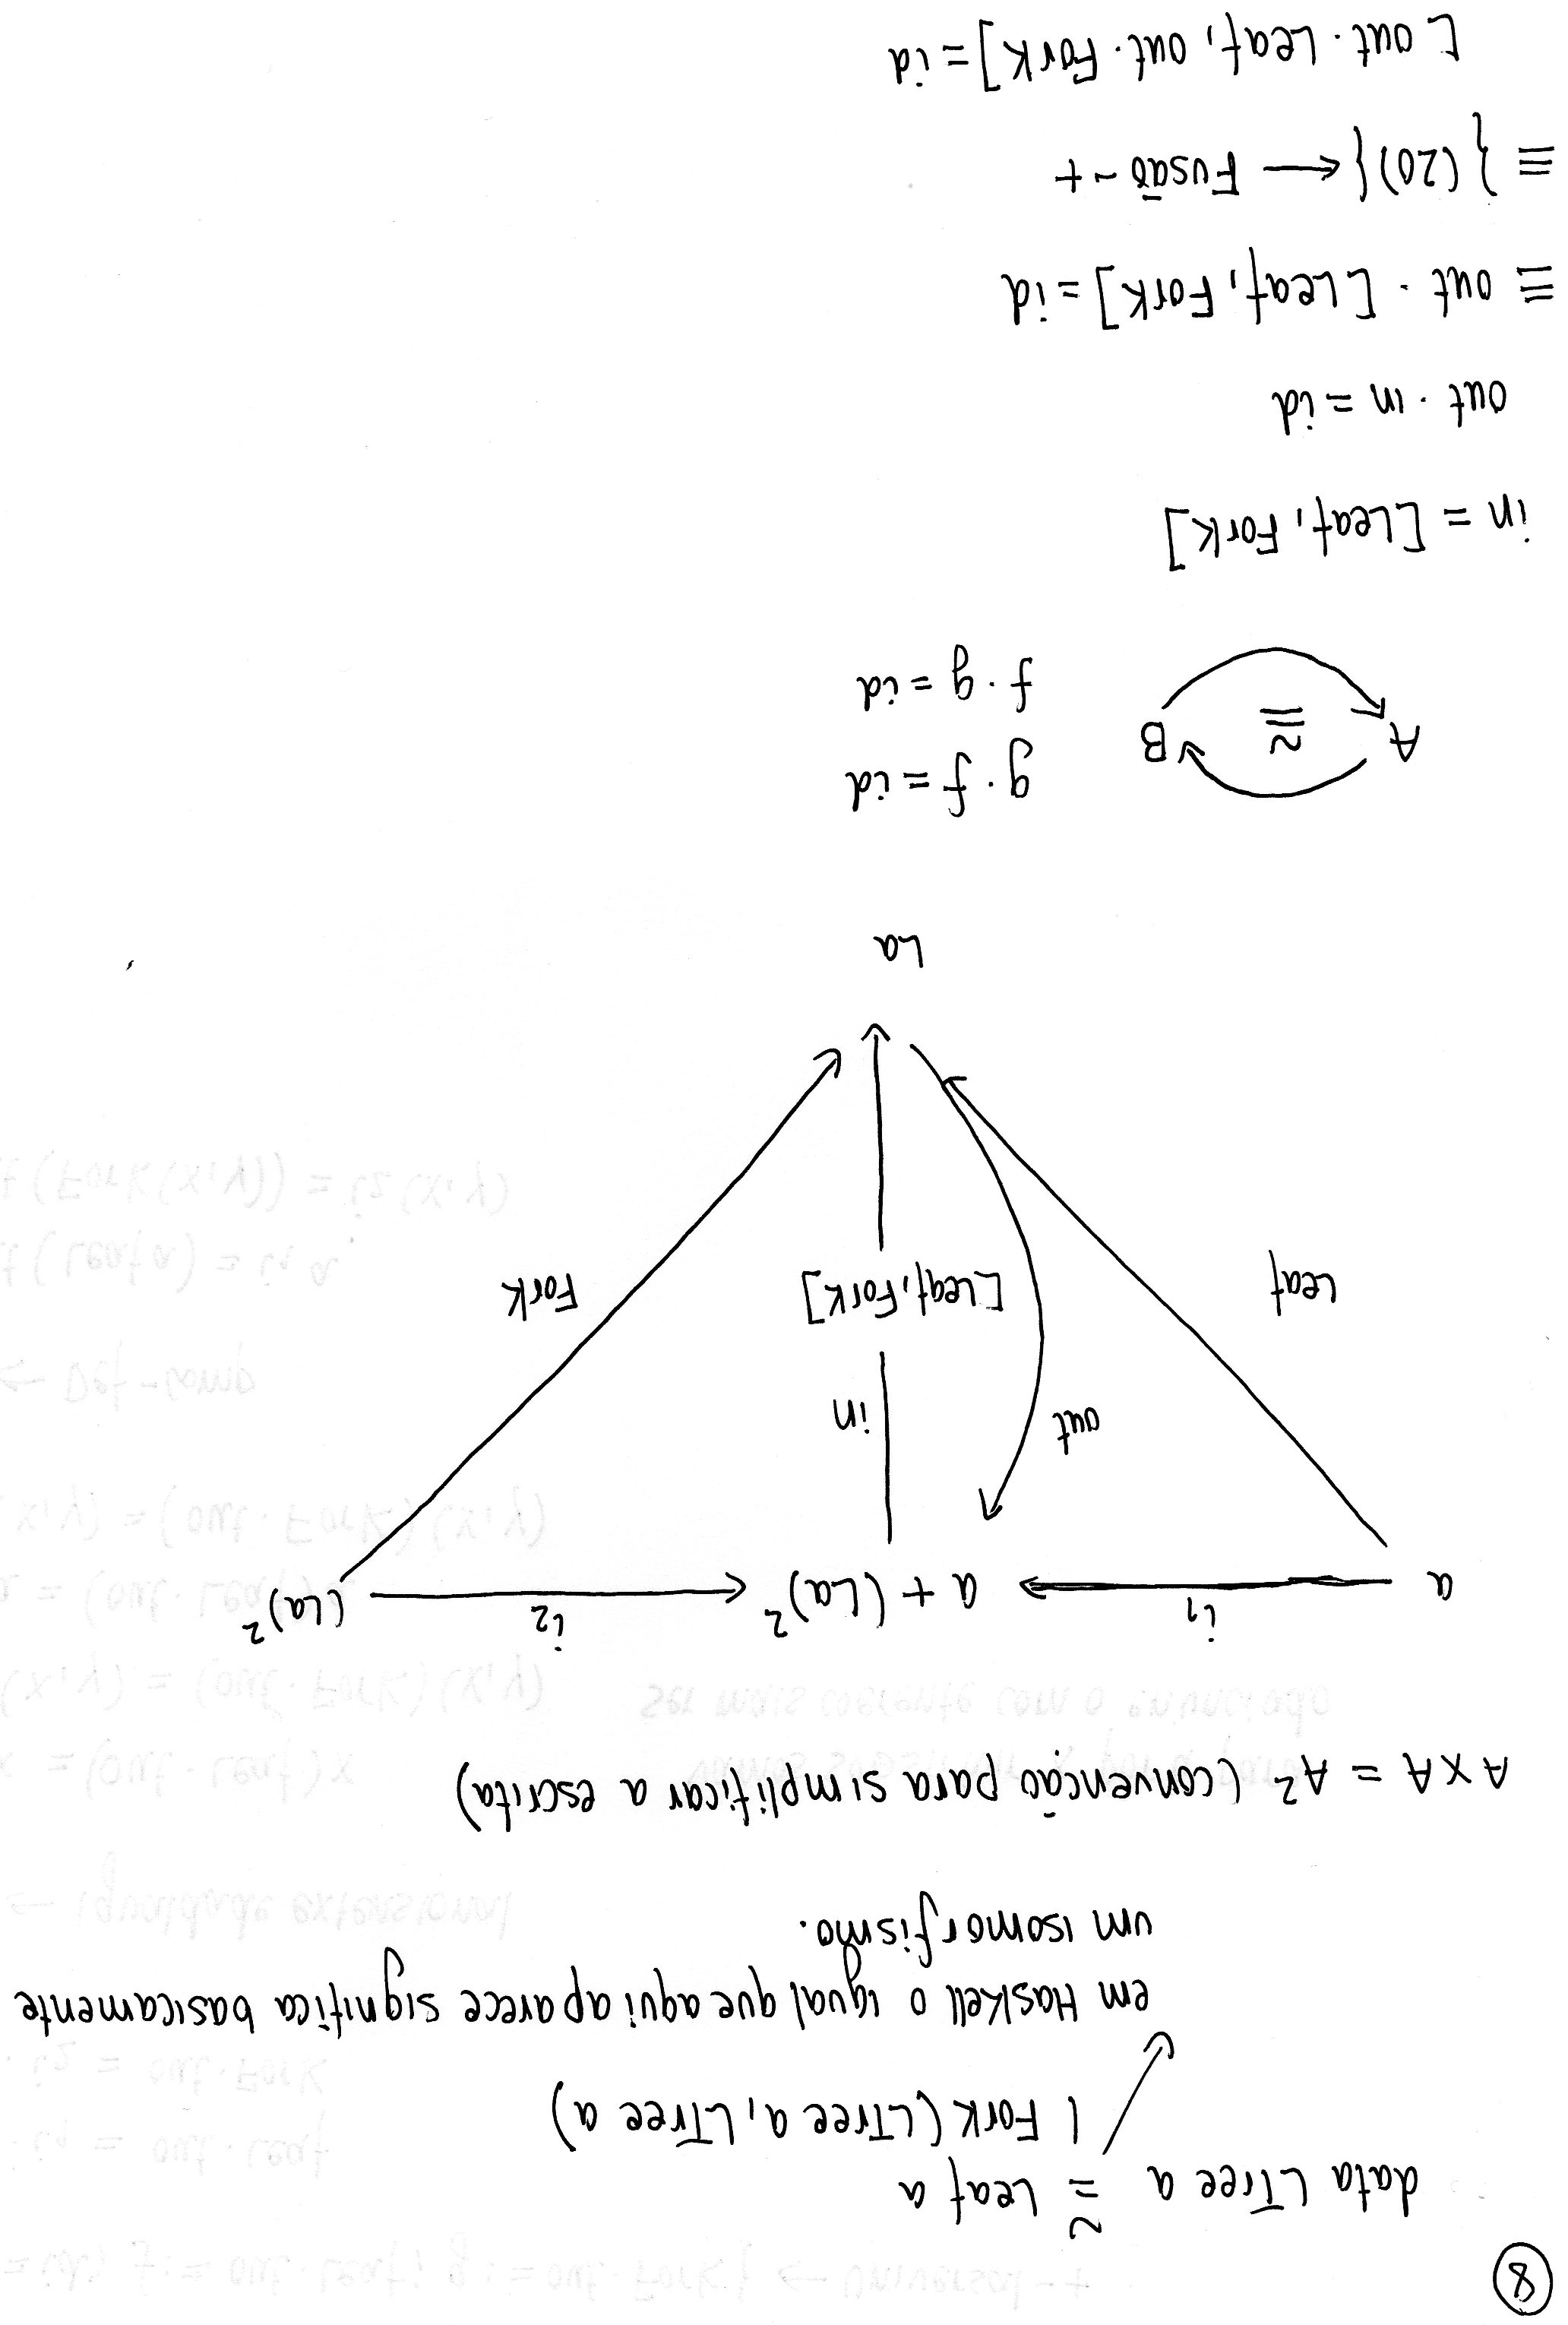 8
data LTree a ≅ Leaf a
| Fork (LTree a, LTree a)
em Haskell o igual que aqui aparece significa basicamente
um isomorfismo.
A x A = A² (convenção para simplificar a escrita)
a i₁ a + (La)² i₂ (La)²
out in
Leaf [Leaf, Fork] Fork
La
A ≅ B
g · f = id
f · g = id
in = [Leaf, Fork]
out · in = id
≡ out · [Leaf, Fork] = id
≡ } (20) { ← Fusão -+
[out · Leaf, out · Fork] = id